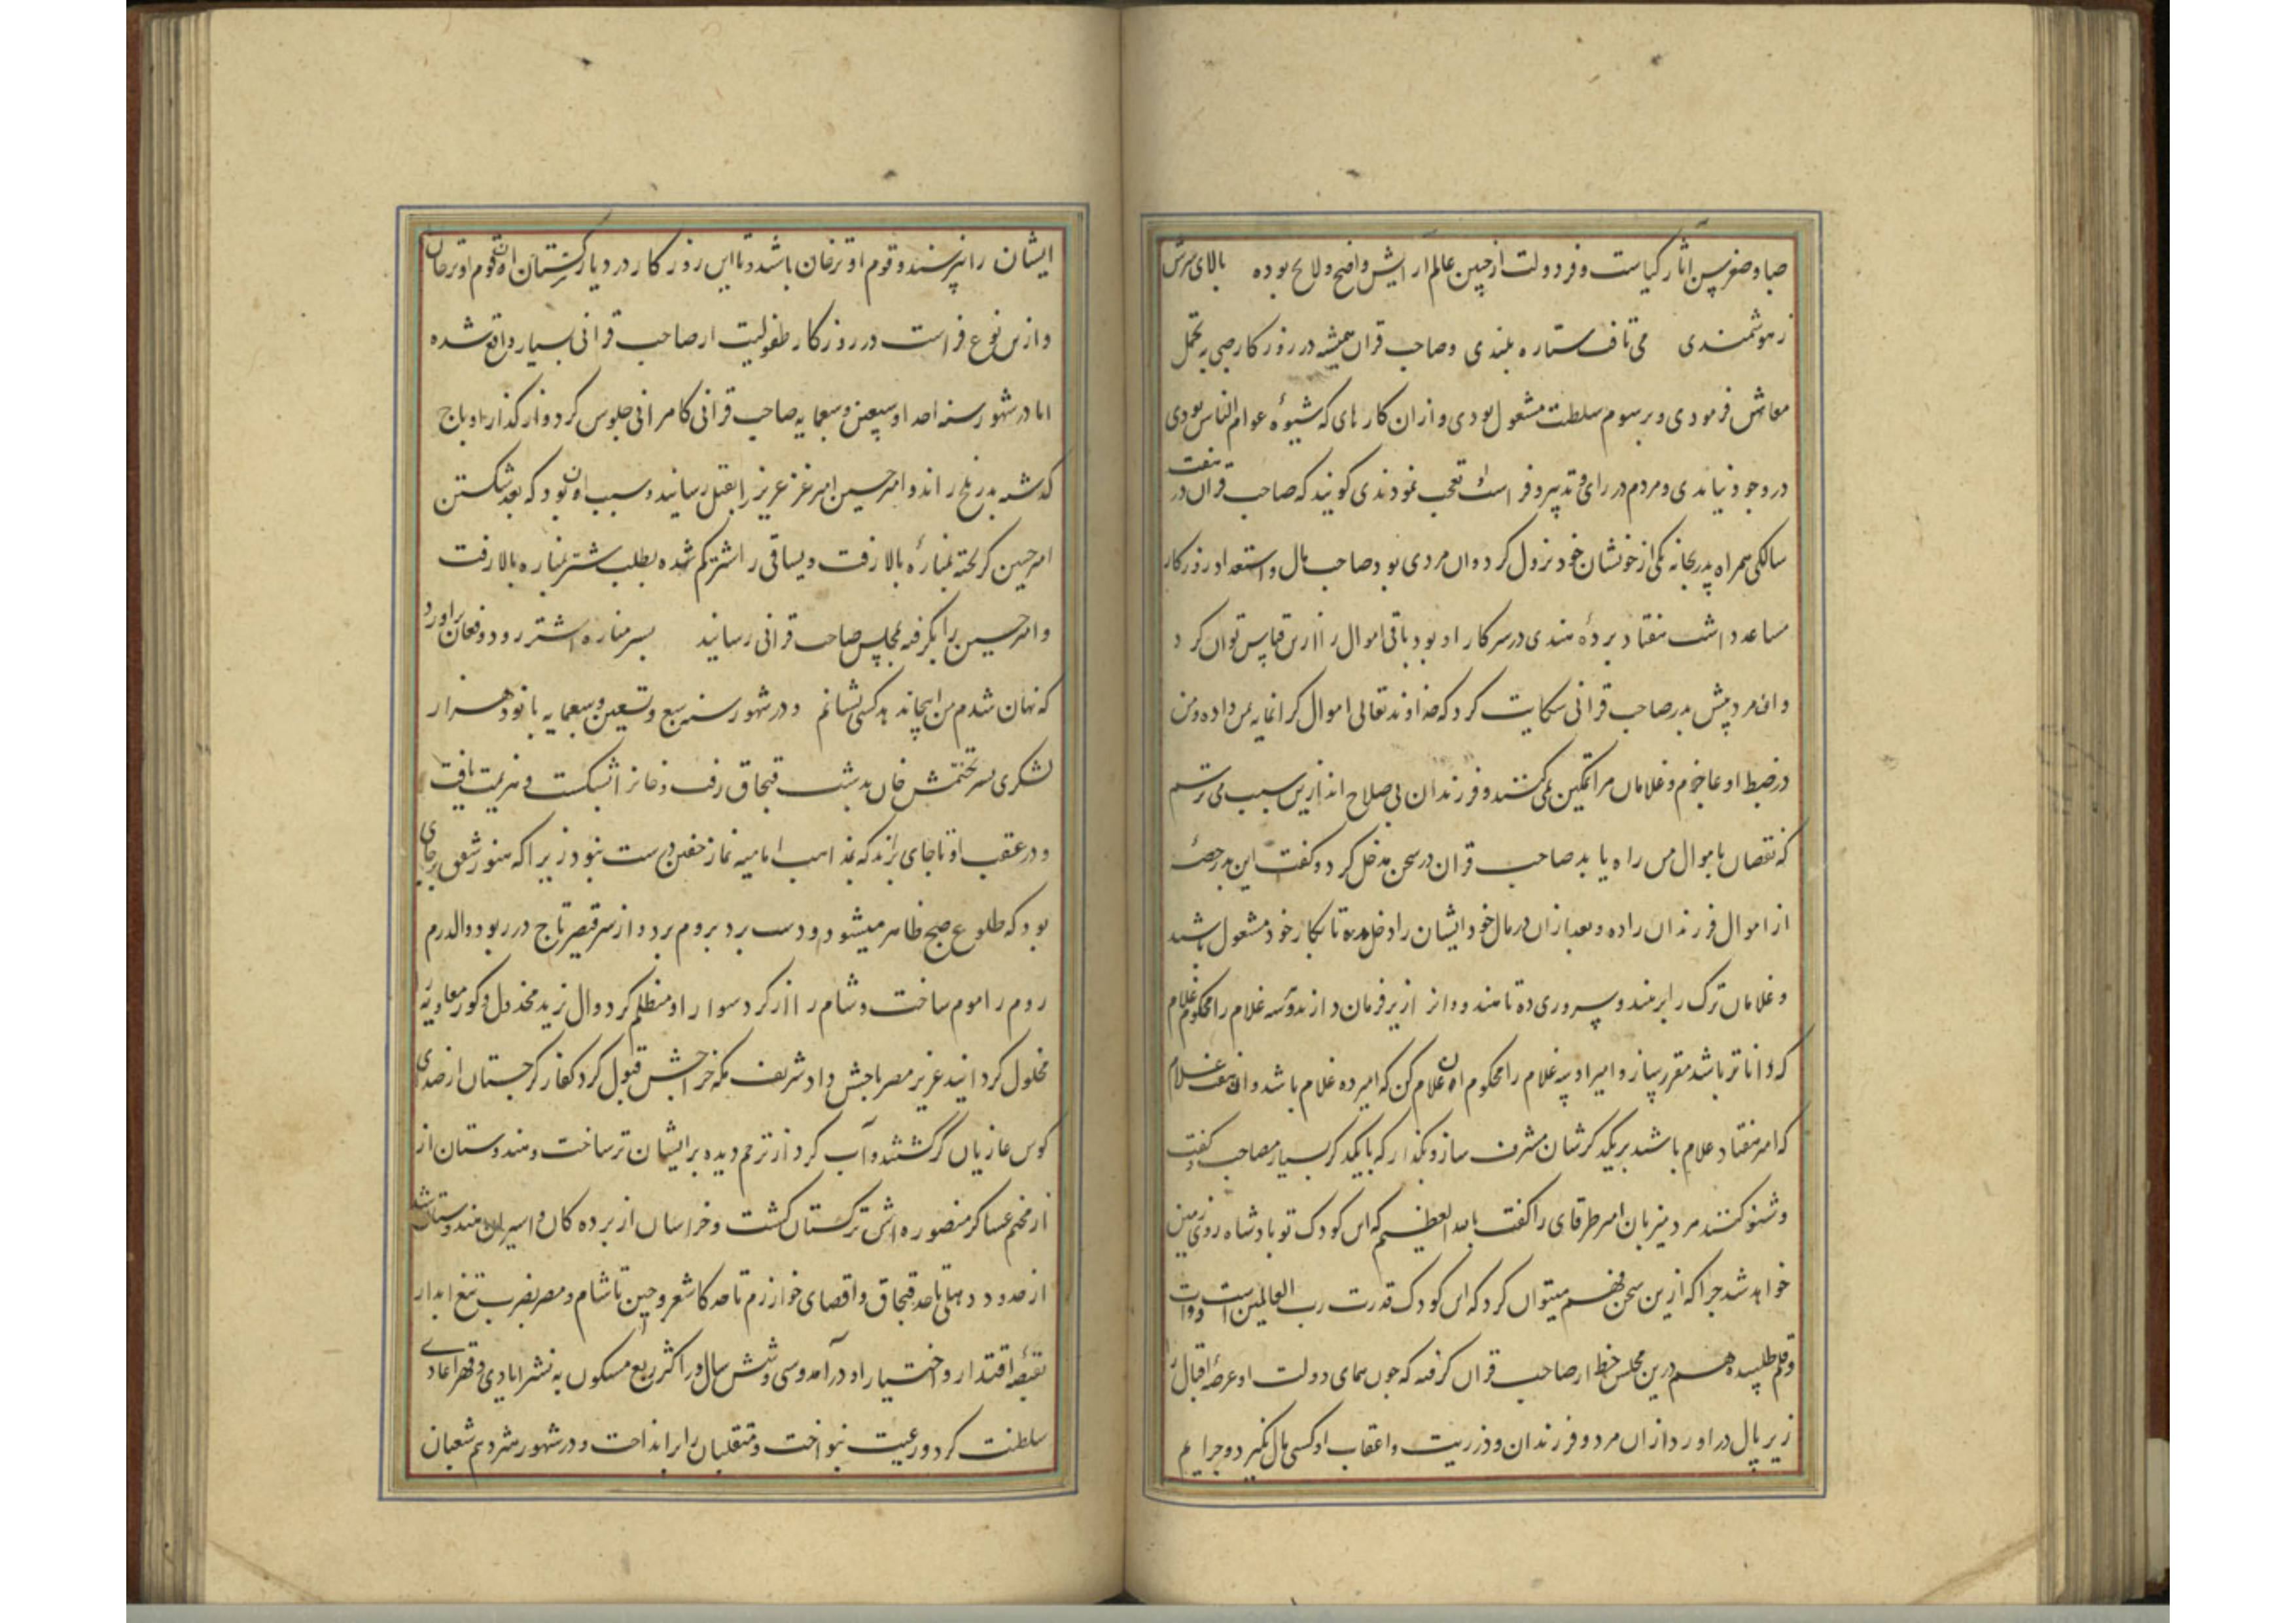 صبا و صغر سن آثار کیاست و فر دولت از جبین عالم آرایش واضح و لایح بوده بالای سرش
ز هوشمندی می تافت ستاره بلندی و صاحب قران همیشه در روزگار صبی به تجمل
معاش فرمودی و برسوم سلطنت مشغول بودی و ازان کارهای که شیوۀ عوام الناس بودی
در وجود نیامدی و مردم در رای و تدبیر و فراست او تعجب نمودندی گویند که صاحب قران در هفت
سالگی همراه پدر بخانه یکی از خویشان خود نزول کرد و ان مردی بود صاحب مال و استعداد روزگار
مساعد داشت هفتاد بردۀ هندی در سرکار او بود باقی اموال را ازین قیاس توان کرد
و ان مرد پیش پدر صاحب قرانی شکایت کرد که خداوند تعالی اموال گرانمایه بمن داده و من
در ضبط او عاجزم و غلامان مرا تمکین نمی کنند و فرزندان بی صلاح اند ازین سبب می ترسم
که نقصان باموال من راه یابد صاحب قران در سخن مدخل کرد و گفت این پدر حصۀ
از اموال فرزندان را ده و بعد ازان در مال خود ایشان را دخل مده تا بکار خود مشغول باشند
و غلامان ترک را بر هندو سروری ده تا هندو را از زیر فرمان دارند و سه غلام را محکوم غلام
که داناتر باشد مقرر ساز و امیر او سه غلام را محکوم ان غلام کن که امیر ده غلام باشد و ان هفت غلام
که امیر هفتاد غلام باشند بر یکدیگرشان مشرف ساز و مگذار که با یکدیگر بسیار مصاحب گفت
و شنو کنند مرد میزبان امیر طرقای را گفت بالله العظیم که این کودک تو پادشاه روی زمین
خواهد شد چرا که ازین سخن فهم میتوان کرد که این کودک قدرت رب العالمین است و دوات
و قلم طلبیده هم درین مجلس خط از صاحب قران گرفته که چون همای دولت او عرصۀ اقبال را
زیر بال در اورد ازان مرد و فرزندان و ذریت و اعقاب او کسی مال نگیرد و جرایم
ایشان را نپرسند و قوم او ترخان باشند و تا این روزگار در دیار ترکستان ان قوم او ترخان
و ازین نوع فراست در روزگار طفولیت از صاحب قرانی بسیار واقع شده
اما در شهور سنه احد و سبعین و سبعمایه صاحب قرانی کامرانی جلوس کرد و از گذار او باج
گذشته بدر بلخ راند و امیر حسین امیر غز عزیز را بقتل رسانید و سبب ان بود که بعد شکستن
امیر حسین گریخته بمنارۀ بالا رفت و یساقی را شتر گم شده بطلب شتر بمناره بالا رفت
و امیر حسین را بگرفته بمجلس صاحب قرانی رسانید بسر مناره اشتر رود و فغان براورد
که نهان شدم من اینجا مکنید کسی نشانم و در شهور سنه سبع و تسعین و سبعمایه با نود هزار
لشکری بسر تختمش خان بدشت قبچاق رفت و خان را بشکست و هزیمت یافت
و در عقب او تا جای براند که بمذهب امامیه نماز خفتن درست نبود زیرا که هنوز شفق بر جای
بود که طلوع صبح ظاهر میشود و دست برد بروم برد و از سر قیصر تاج در ربود و الدرم
روم را موم ساخت و شام را از گرد سواراو مظلم کرد و ال یزید مخذول و گور معاویه
محلول گردانید عزیز مصر باجش داد شریف مکه خراجش قبول کرد کفار گرجستان از صدای
کوس غازیان کر گشتند و آب کر از ترحم دیده بر ایشان تر ساخت و هندوستان از
از مخیم عساکر منصوره اش ترکستان گشت و خراسان از برده کان و اسیران هندوستان شد
از حدود دهلی تا حد قبچاق و اقصای خوارزم تا حد کاشغر و چین تا شام و مصر بضرب تیغ ابدار
بقبضۀ اقتدار و اختیار او در آمد و سی و شش سال در اکثر ربع مسکون به نشر ایادی و قهر اعادی
سلطنت کرد و رعیت بنواخت و متقلبان را برانداخت و در شهور شردهم شعبان